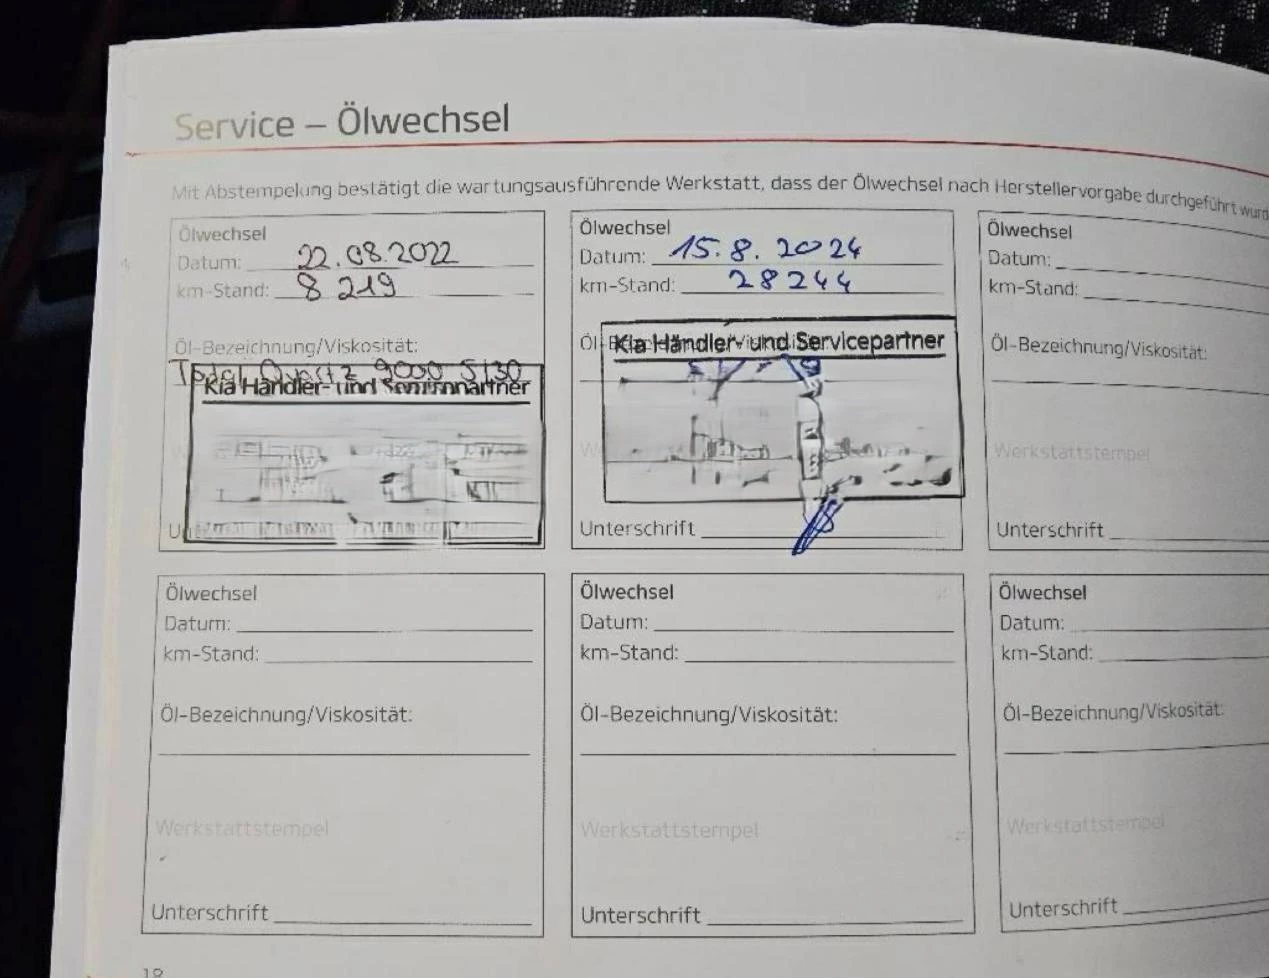 Service – Ölwechsel
Mit Abstempelung bestätigt die wartungsausführende Werkstatt, dass der Ölwechsel nach Herstellervorgabe durchgeführt wurd
Ölwechsel
Datum: 22.08.2022
km-Stand: 8 219
Öl-Bezeichnung/Viskosität:
Total Quartz 9000 5/30
Kia Händler- und
Ölwechsel
Datum: 15.8.2024
km-Stand: 28244
Kia Händler- und Servicepartner
Unterschrift
Ölwechsel
Datum:
km-Stand:
Öl-Bezeichnung/Viskosität:
Werkstattstempel
Unterschrift
Ölwechsel
Datum:
km-Stand:
Öl-Bezeichnung/Viskosität:
Werkstattstempel
Unterschrift
Ölwechsel
Datum:
km-Stand:
Öl-Bezeichnung/Viskosität:
Werkstattstempel
Unterschrift
Ölwechsel
Datum:
km-Stand:
Öl-Bezeichnung/Viskosität:
Werkstattstempel
Unterschrift
18